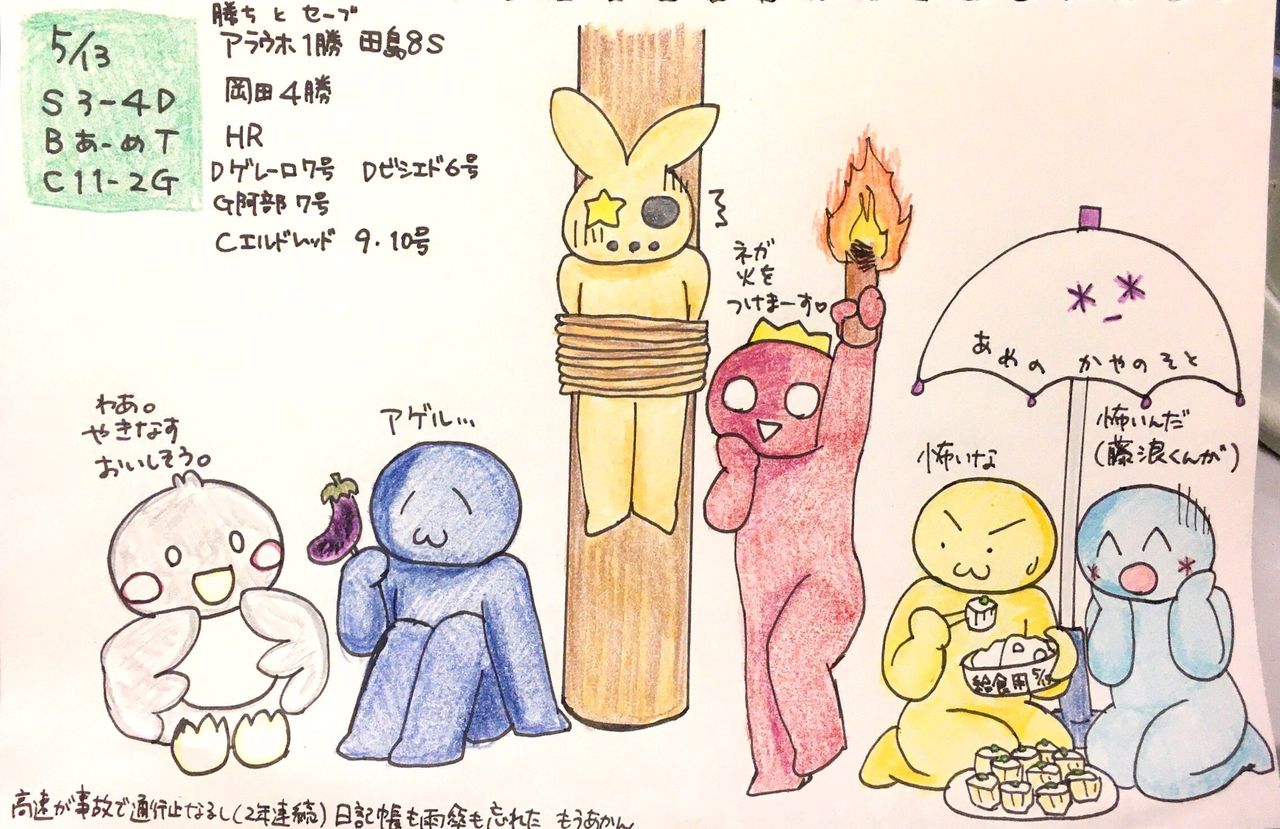 5/13
S 3-4 D
B あ-め T
C 11-2 G
勝ち と セーブ
アラウホ1勝 田島8S
岡田4勝
HR
Dゲレーロ7号 Dビシエド6号
G阿部7号
Cエルドレッド 9・10号
ネガ
火を
つけまーす♡
あめの かやのそと
わあ。
やきなす
おいしそう。
アゲル…
怖いな
怖いんだ
(藤浪くんが)
給食用
高速が事故で通行止なるし(2年連続) 日記帳も雨傘も忘れた もうあかん